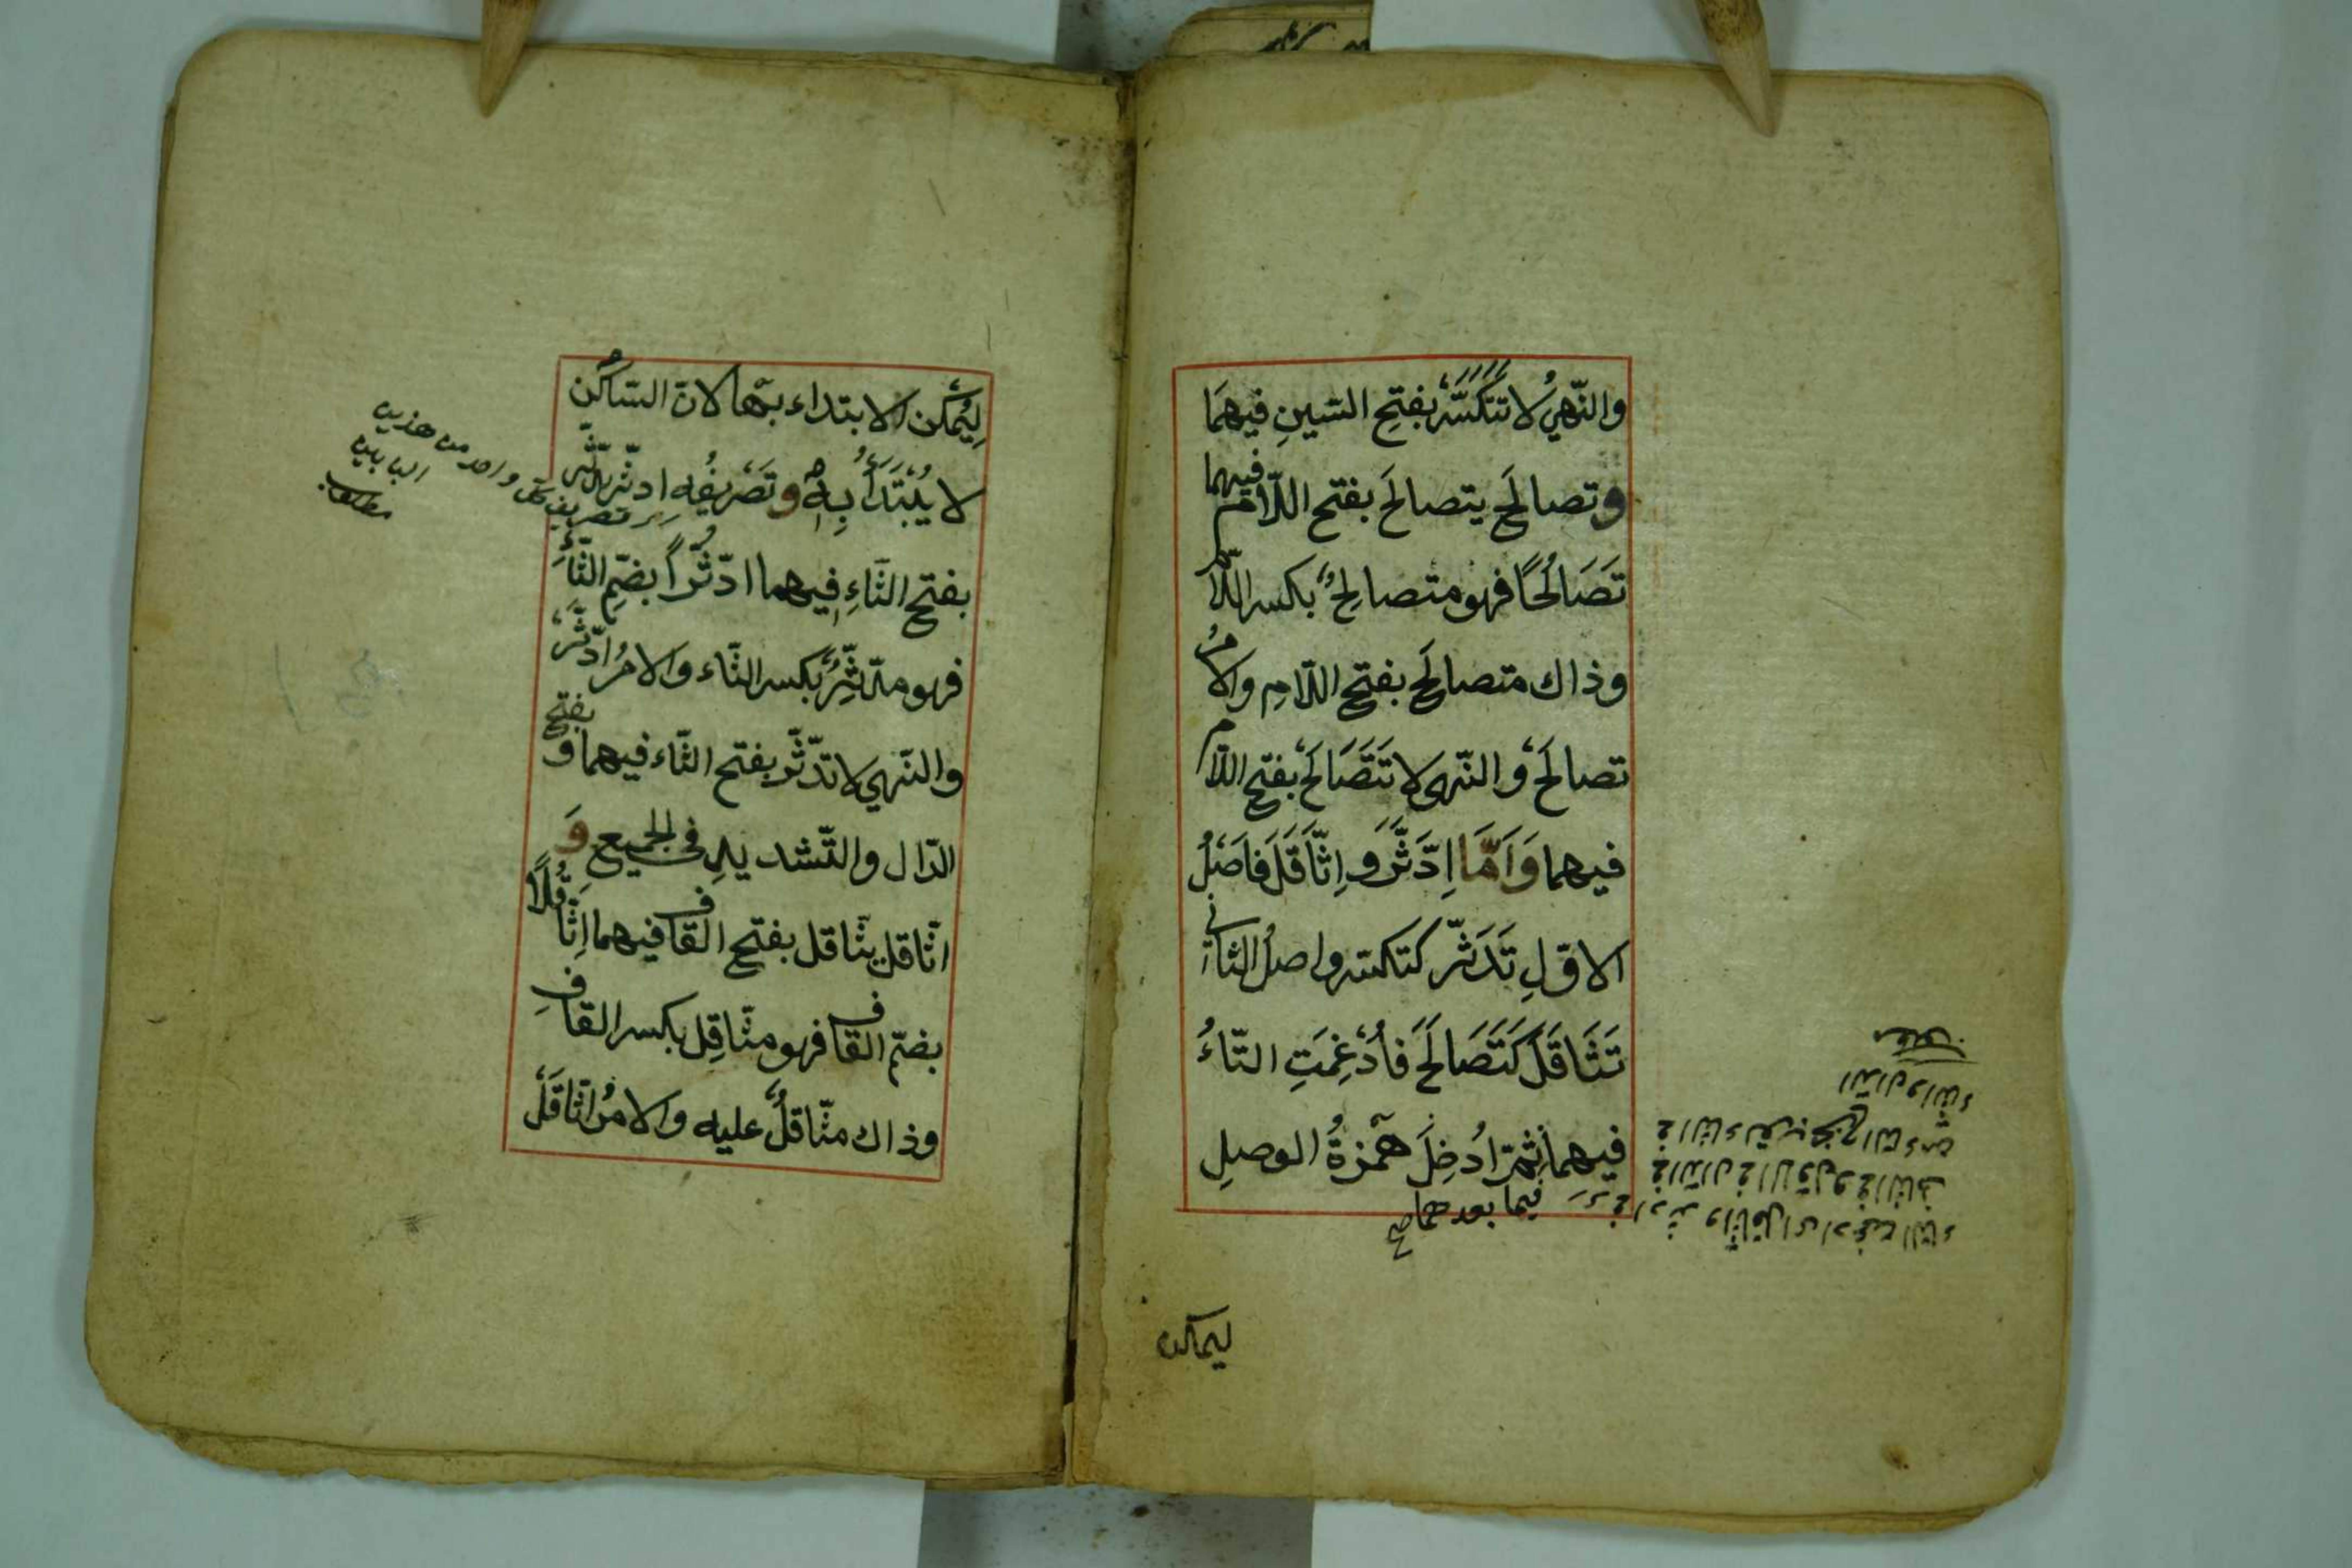 والنّهيُ لا تتكسّر بفتحِ السّينِ فيهمَا
وتصالحَ يتصالحَ بفتح اللّام فيهما
تَصَالُحًا فهو متصالِحٌ بكسر اللّام
وذاك متصالَح بفتح اللّامِ والامرُ
تصالَحْ والنّهى لا تَتَصَالَحْ بفتح اللّام
فيهما وَاَمّا اِدَّثَّرَ و اِثَّاقَلَ فاَصْلُ
الاوّلِ تَدَثَّر كتكسّر واصلُ الثانى
تَثَاقَلَ كَتَصَالَحَ فَاُدْغِمَتِ التّاءُ
فيهما ثمّ اُدخِلَ همزةُ الوصلِ
فيما بعدهما صح
الدّال والثاء
ليمكن
لِيُمْكن الابتداء بها لانّ السّاكن
لا يُبْتَدَأُ بِهِ وتَصْرِيفُه ادّثّر يدّثّر
تصريف كل واحد من هذين
البابين
مطلب
بفتح الثّاءِ فيهما ادّثُّراً بضمّ الثّاءِ
فهو مدّثِّرٌ بكسر الثّاء والامرُ ادّثَّرْ
والنّهي لا تدّثّر بفتح الثّاء فيهما وبفتح
الدّال والتّشديدِ فى الجميعِ وَ
اثّاقل يثّاقل بفتح القاف فيهما اِثّاقُلًا
بضمّ القاف فهو مثّاقِل بكسر القافِ
وذاك مثّاقَلٌ عليه والامرُ اثّاقَلْ